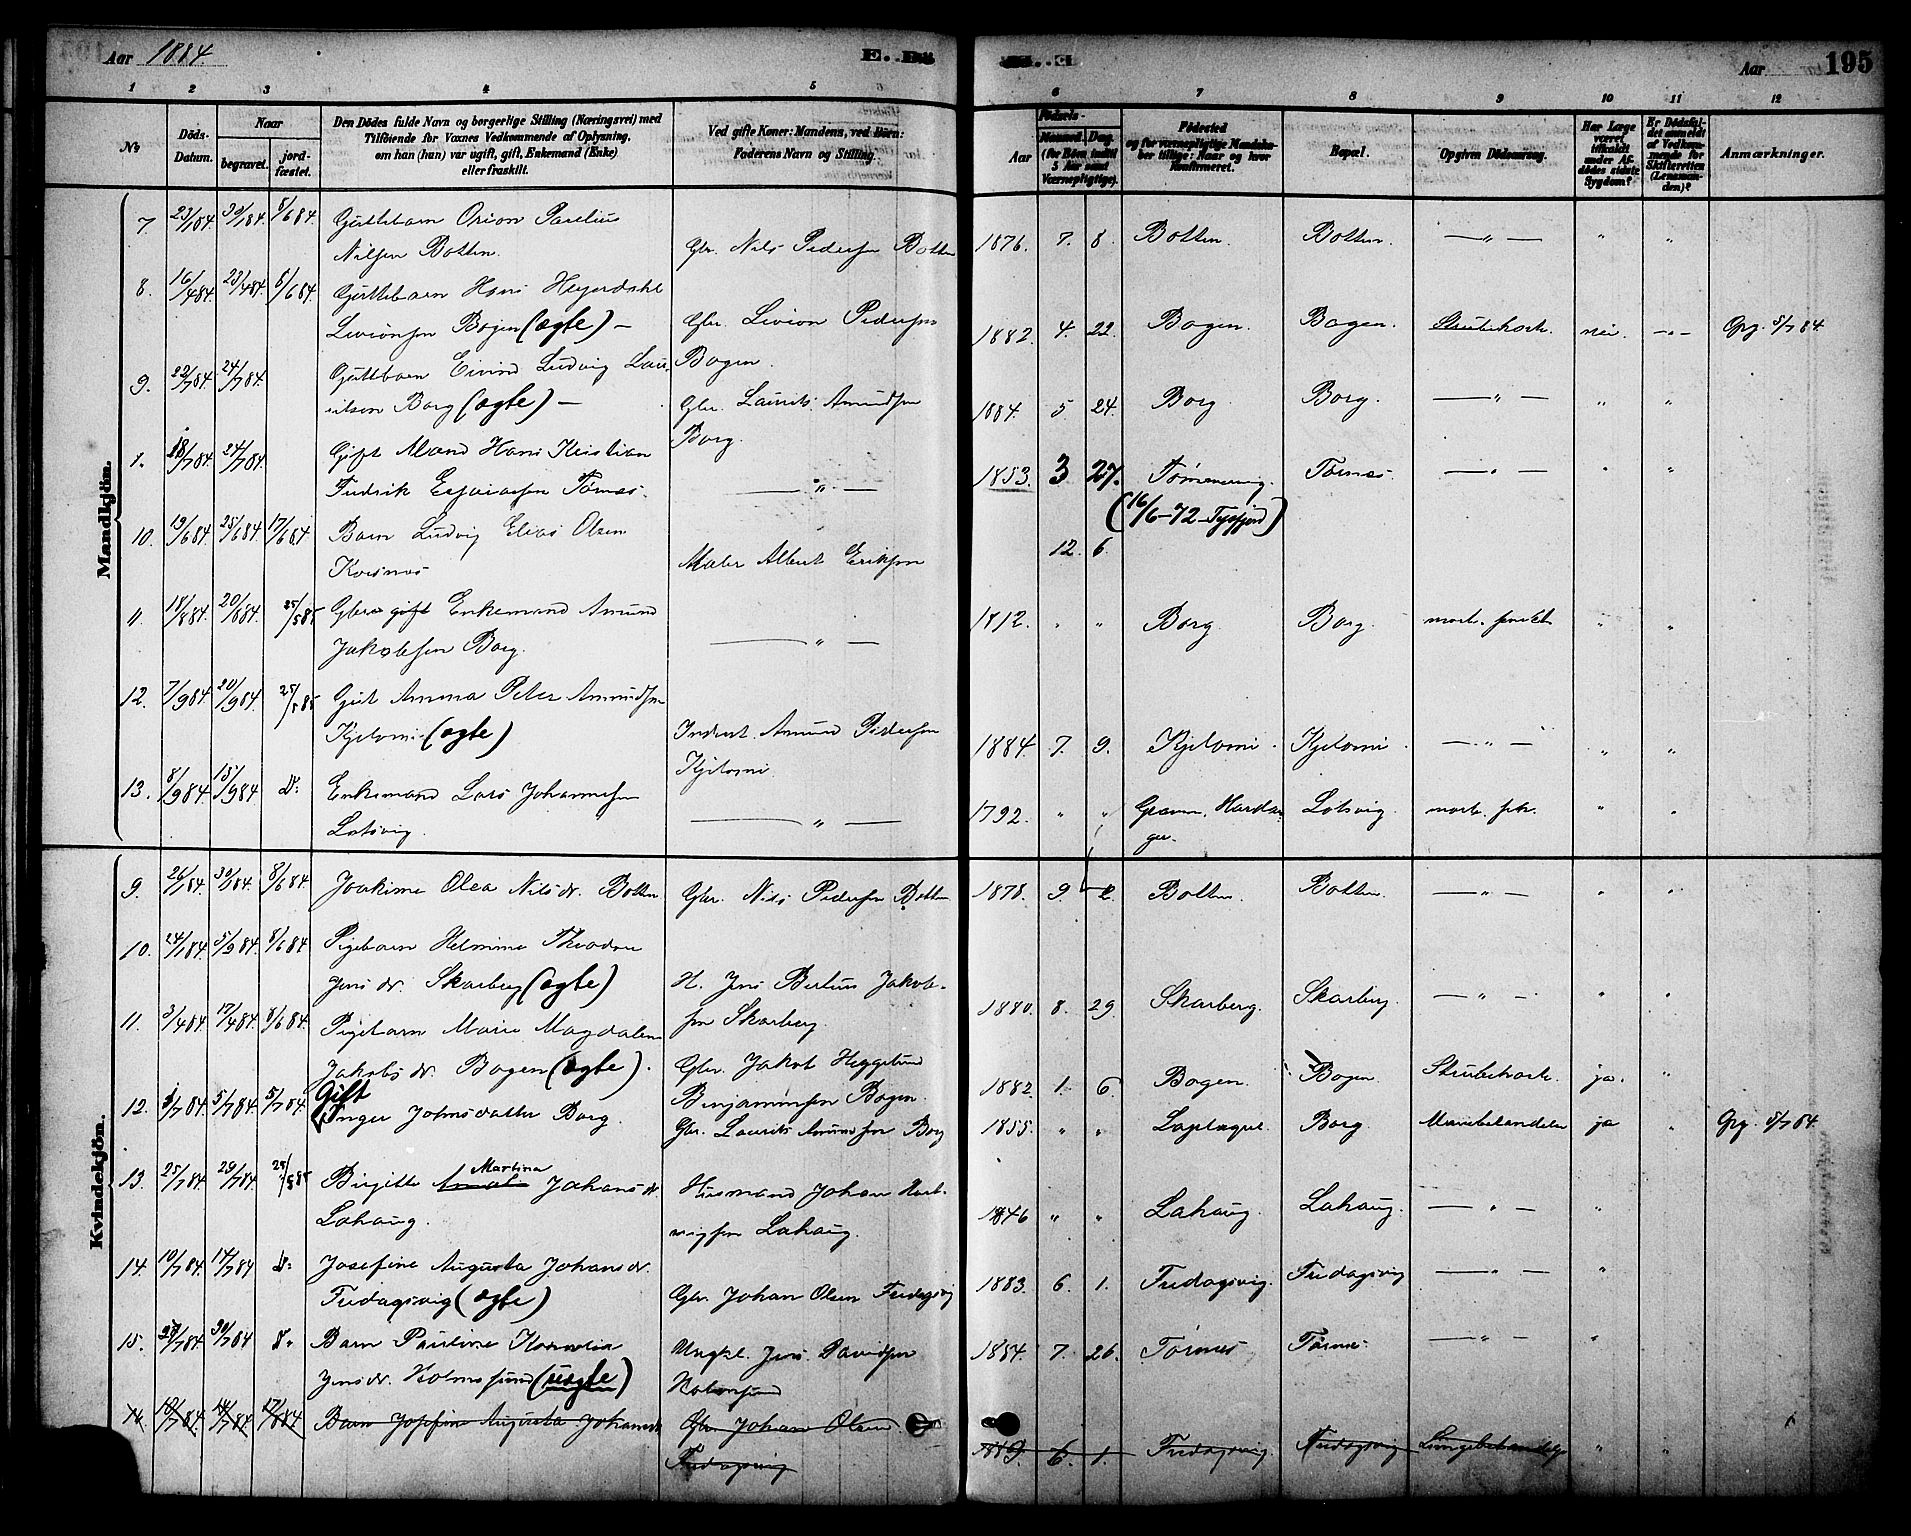 Aar 1884.
E. Dö
Aar
195
1 2 3 4 5 6
6 7 8 9 10 11 12
No
Döds-Datum.
Naar
begravet.
jord-fæstet.
Den Dödes fulde Navn og borgerlige Stilling (Næringsvei) med
Tilföiende for Voxnes Vedkommende af Oplysning,
om han (hun) var ugift, gift, Enkemand (Enke)
eller fraskilt.
Ved gifte Koner: Mandens, ved Börn:
Faderens Navn og Stilling.
Födsels-
Aar
Maaned. Dag.
(for Börn indtil
5 Aar samt
Værnepligtige).
Födested
og for værnepligtige Mandska-
ber tillige: Naar og hvor
Konfirmeret.
Bopæl.
Opgiven Dödsaarsag.
Har Læge
været
tilkaldt
under Af-
dödes sidste
Sygdom?
Er Dödsfal-
det anmeldt
af Vedkom-
mende for
Skifteretten
(Lensman-
den)?
Anmærkninger.
Mandkjön.
7. 23/1 84. 30/1 84. 8/6 84. Guttebarn Orion Paulius
Nilsen Botten. Gbr. Nils Pedersen Botten 1876. 7. 8. Botten. Botten. — " — " "
8. 16/4 84. 23/4 84. 8/6 84. Guttebarn Hans Heyerdahl
Levionsen Bogen (ægte) — Gbr. Levion Pedersen
Bogen. 1882. 4. 22. Bogen. Bogen. Strubehoste. nei. — " — Opg. 5/7 84.
9. 22/7 84. 24/7 84. Guttebarn Eivind Ludvig Lau-
ritsen Borg (ægte) — Gbr. Laurits Amundsen
Borg. 1884. 5 24. Borg. Borg. — " — " "
1. 18/7 84. 24/7 84. Gift Mand Hans Kristian
Fredrik Esaiassen Tørnes. — " — 1853. 3 27. Tørnes. — " — " "
(16/6-72 - Tysfjord)
10. 19/6 84. 25/6 84. 17/6 84. Barn Ludvig Elias Olsen
Korsnes Maler Albert Eriksen 12. 6.
11. 18/8 84. 20/8 84. 25/5 85 Gbr. gift Enkemand Amund
Jakobsen Borg. — " — 1812. " " Borg. Borg. marb. senect. " "
12. 7/9 84. 20/9 84. 25/5 85 Gut Amma Peter Amundsen
Kjelvomi (ægte) Inderst. Amund Pedersen
1884 7. 9. — " — " "
13. 8/9 84. 15/9 84. Do Enkemand Lars Johannesen
Lotsvig. — " — 1792. " " Graven, Hardan-
ger. Lotsvig. " "
Kvindekjön.
9. 26/1 84. 30/1 84. 8/6 84. Joakime Olea Nilsdr. Botten Gbr. Nils Pedersen Botten 1878. 9 2. Botten. Botten. — " — " "
10. 24/1 84. 5/2 84. 8/6 84. Pigebarn Helmine Theodora
Jensdr. Skarberg (ægte) H. Jens Bertius Jakob-
sen Skarberg. 1880. 8. 29. Skarberg. Skarberg. — " — " "
11. 3/4 84. 17/4 84. 8/6 84. Pigebarn Marie Magdalena
Jakobsdr. Bogen (ægte). Gbr. Jakob Heggelund
Benjaminsen Bogen. 1882. 1. 6. Bogen. Bogen. Strubehoste. ja. "
Gift
12. 3/7 84. 5/7 84. 5/7 84. Inger Johnsdatter Borg. Gbr. Laurits Amundsen Borg 1855. " " Borg. ja " Opg. 5/7 84.
13. 25/7 84. 29/7 84. 25/5 85 Birgitte Amalie Martina Johansdr.
Lahaug. Husmand Johan Hart-
vigsen Lahaug. 1846 " " Lahaug. Lahaug. — " — "
14. 10/7 84. 14/7 84 Do Josefine Augusta Johansdr.
Fredagsvig (ægte) Gbr. Johan Olsen Fredagsvig 1883. 6 1. Fredagsvig. Fredagsvig — " — "
15. 27/7 84. 30/7 84 Do Barn Pauline Kornelia
Jensdr. Holmsund (uægte) Ungkl. Jens Davidsen
Holmsund 1884. 7. 26. Tørnes Tørnes — " — "
14. 10/7 84. 14/7 84. 17/8 84. Barn Josefine Augusta Johansdr. Gbr. Johan Olsen
Fredagsvig 6. 1. Fredagsvig. Fredagsvig Lungebetændelse " "